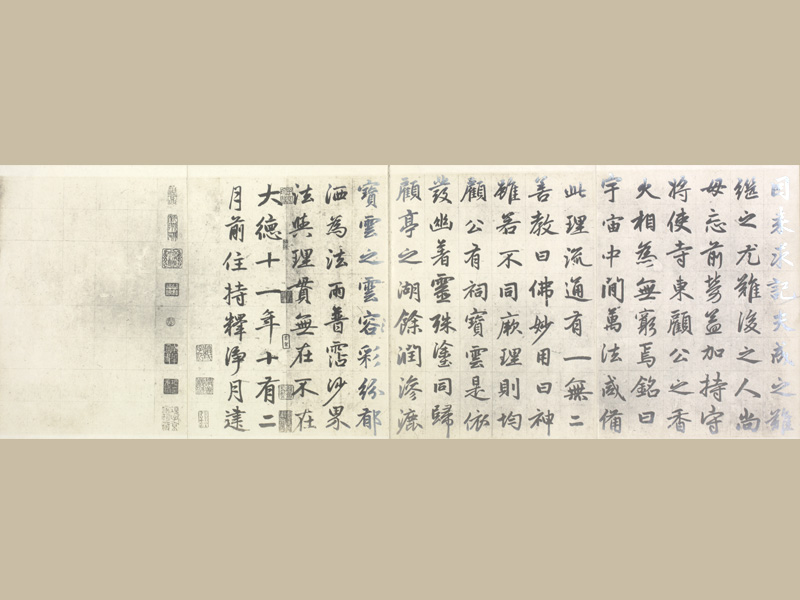 因来求記先成之難
繼之尤難後之人尚
毋忘前勞益加持守
將使寺東顧公之香
火相為無窮焉銘曰
宇宙中間萬法咸備
此理流通有一無二
善教曰佛妙用曰神
雖若不同厥理則均
顧公有祠寶雲是依
發幽著靈殊塗同歸
顧亭之湖餘潤滲漉
寶雲之雲容彩紛郁
洒為法雨普霑沙界
法與理貫無在不在
大德十一年十有二
月前住持釋淨月建